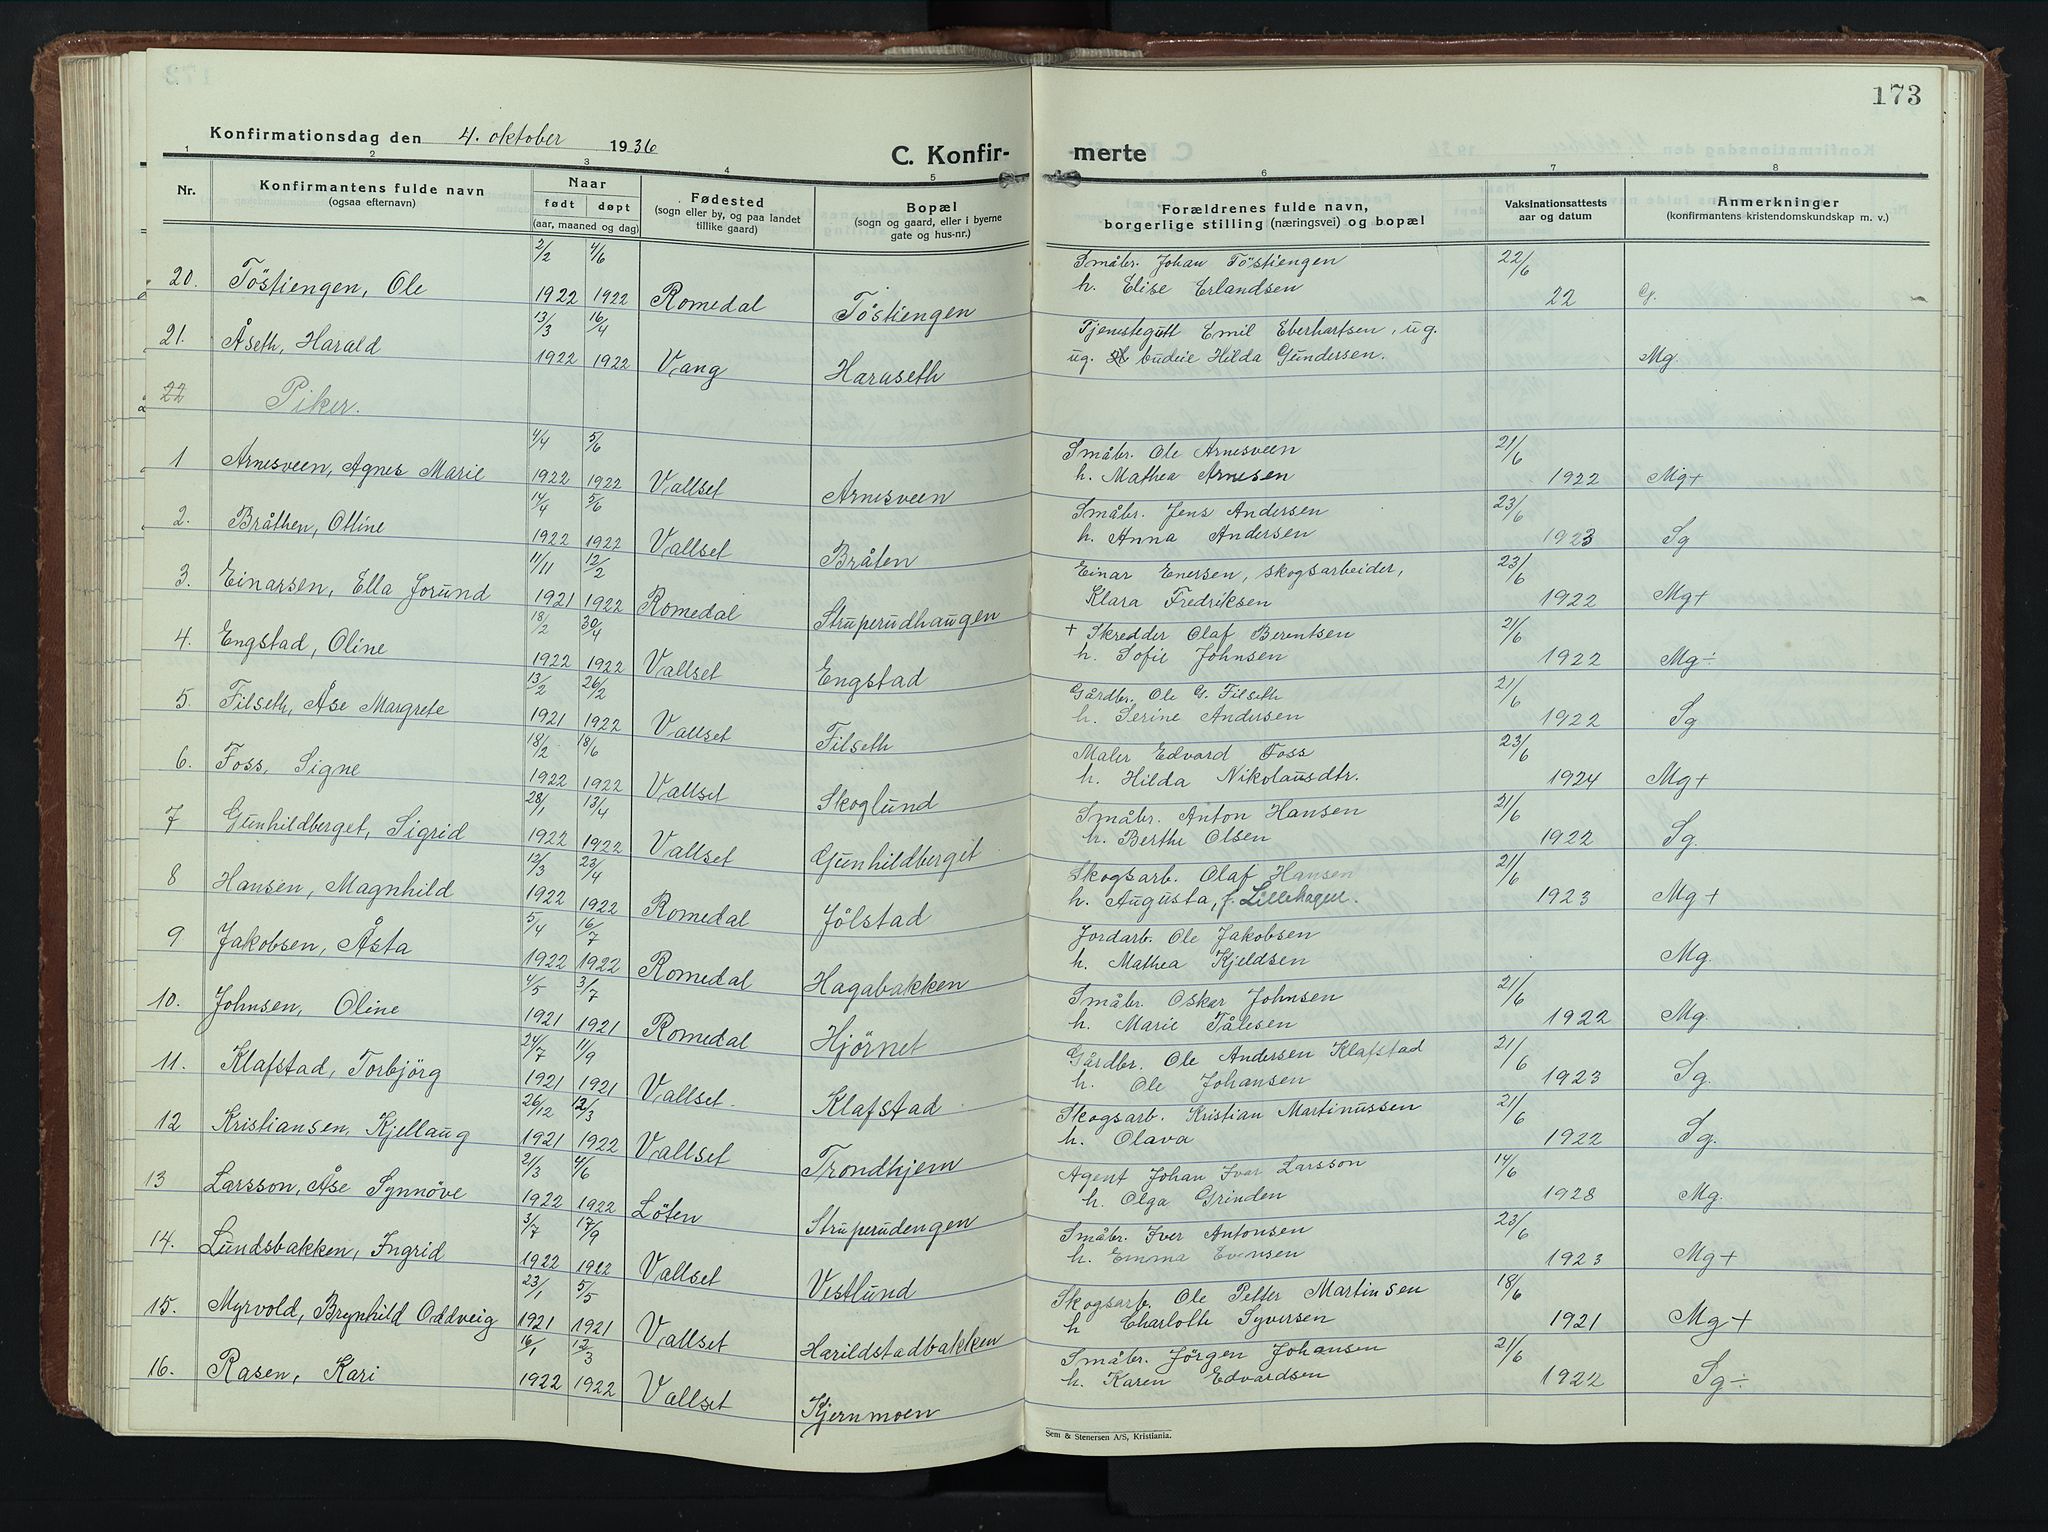 173
Konfirmationsdag den 4. oktober 1936
C. Konfir-merte
1 2 3 4 5 6 7 8
Nr. Konfirmantens fulde navn (ogsaa efternavn) Naar født døpt (aar, maaned og dag) Fødested (sogn eller by, og paa landet tillike gaard) Bopæl (sogn og gaard, eller i byerne gate og hus-nr.) Forældrenes fulde navn, borgerlige stilling (næringsvei) og bopæl Vaksinationsattests aar og datum Anmerkninger (konfirmantens kristendomskundskap m. v.)
2/2 4/6 Småbr. Johan Töstiengen 22/6
20. Töstiengen, Ole 1922 1922 Romedal Töstiengen h. Elise Erlandsen 22 G.
13/3 16/4 Tjenestegutt Emil Eberhartsen, ug.
21. Åseth, Harald 1922 1922 Vang Haraseth ug. budeie Hilda Gundersen. Mg.
22 Piker.
4/4 5/6 Småbr. Ole Arnesveen 21/6
1 Arnesveen, Agnes Marie 1922 1922 Vallset Arnesveen h. Mathea Arnesen 1922 Mg+
14/4 5/6 Småbr. Jens Andersen 23/6
2. Bråthen, Otline 1922 1922 Vallset Bråten h. Anna Andersen 1923 Sg
11/11 12/2 Einar Enersen, skogsarbeider, 23/6
3. Einarsen, Ella Jorund 1921 1922 Romedal Struperudhaugen Klara Fredriksen 1922 Mg+
18/2 30/4 + Skredder Olaf Berentsen 21/6
4. Engstad, Oline 1922 1922 Vallset Engstad h. Sofie Johnsen 1922 Mg÷
13/2 26/2 Gårdbr. Ole G. Filseth 21/6
5. Filseth, Åse Margrete 1921 1922 Vallset Filseth h. Serine Andersen 1922 Sg
18/2 18/6 Maler Edvard Foss 23/6
6. Foss, Signe 1922 1922 Vallset Skoglund h. Hilda Nikolausdtr. 1924 Mg+
28/1 13/4 Småbr. Anton Hansen 21/6
7 Gunhildberget, Sigrid 1922 1922 Vallset Gunhildberget h. Berthe Olsen 1922 Sg.
12/3 23/4 Skogsarb. Olaf Hansen 21/6
8 Hansen, Magnhild 1922 1922 Romedal Jölstad h. Augusta, f. Lillehagen. 1923 Mg+
5/4 16/7 Jordarb. Ole Jakobsen
9 Jakobsen, Åsta 1922 1922 Romedal Hagabakken h. Mathea Kjeldsen Mg.
4/5 3/7 Småbr. Oskar Johnsen 21/6
10. Johnsen, Oline 1921 1921 Romedal Hjörnet h. Marie Tålesen 1922 Mg.
24/7 11/9 Gårdbr. Ole Andersen Klafstad 21/6
11. Klafstad, Torbjörg 1921 1921 Vallset Klafstad h. Ole Johansen 1923 Sg.
26/12 12/3 Skogsarb. Kristian Martinussen 21/6
12 Kristiansen, Kjellaug 1921 1922 Vallset Trondhjem h. Olava 1922 Sg.
21/3 4/6 Agent Johan Ivar Larsson 14/6
13 Larsson, Åse Synnöve 1922 1922 Löten Struperudengen h. Olga Grinden 1928 Mg.
3/7 17/9 Småbr. Iver Antonsen 23/6
14. Lundsbakken, Ingrid 1922 1922 Vallset Vestlund h. Emma Evensen 1923 Mg+
23/1 5/5 Skogsarb. Ole Petter Martinsen 18/6
15. Myrvold, Brynhild Oddveig 1921 1921 Vallset Harildstadbakken h Charlotte Syversen 1921 Mg+
16/1 12/3 Småbr. Jörgen Johansen 21/6
16. Rasen, Kari 1922 1922 Vallset Kjernmoen h. Karen Edvardsen 1922 Sg÷
Sem & Stenersen A/S, Kristiania.